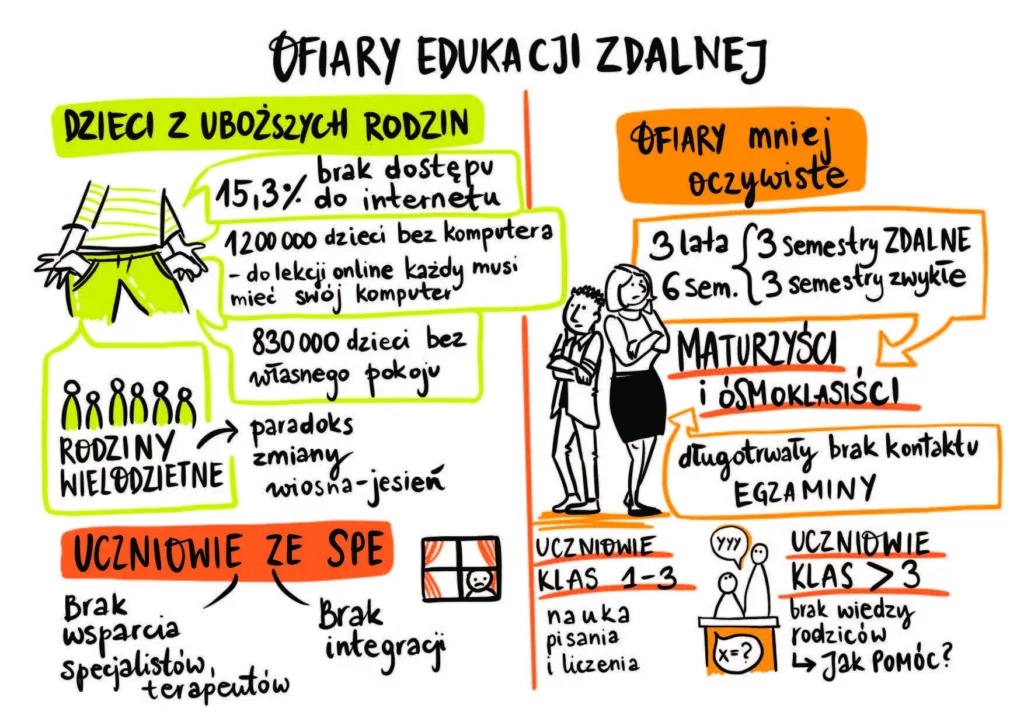 OFIARY EDUKACJI ZDALNEJ
DZIECI Z UBOŻSZYCH RODZIN
15,3% brak dostępu
do internetu
1200 000 dzieci bez komputera
- do lekcji online każdy musi
mieć swój komputer
830 000 dzieci bez
własnego pokoju
RODZINY
WIELODZIETNE
paradoks
zmiany
wiosna-jesień
UCZNIOWIE ZE SPE
Brak
wsparcia
specjalistów,
terapeutów
Brak
integracji
OFIARY mniej
oczywiste
3 lata { 3 semestry ZDALNE
6 sem. { 3 semestry zwykłe
MATURZYŚCI
i ÓSMOKLASIŚCI
długotrwały brak kontaktu
EGZAMINY
UCZNIOWIE
KLAS 1-3
nauka
pisania
i liczenia
YYY
x=?
UCZNIOWIE
KLAS > 3
brak wiedzy
rodziców
↳ Jak POMÓC?